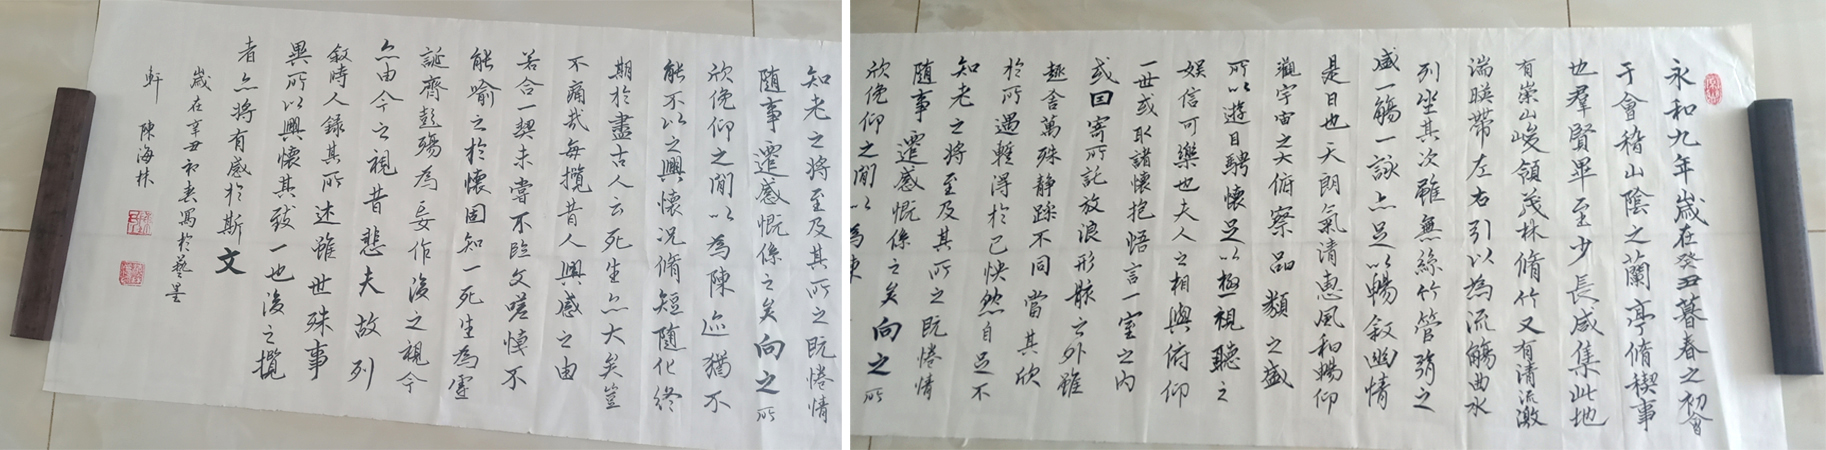 永和九年歲在癸丑暮春之初會
于會稽山陰之蘭亭脩稧事
也羣賢畢至少長咸集此地
有崇山峻領茂林脩竹又有清流激
湍暎帶左右引以為流觴曲水
列坐其次雖無絲竹管弦之
盛一觴一詠亦足以暢敘幽情
是日也天朗氣清惠風和暢仰
觀宇宙之大俯察品類之盛
所以遊目騁懷足以極視聽之
娛信可樂也夫人之相與俯仰
一世或取諸懷抱悟言一室之內
或因寄所託放浪形骸之外雖
趣舍萬殊静躁不同當其欣
於所遇蹔得於己快然自足不
知老之將至及其所之既惓情
隨事遷感慨係之矣向之所
欣俛仰之閒以為陳
知老之將至及其所之既惓情
隨事遷感慨係之矣向之所
欣俛仰之閒以為陳迹猶不
能不以之興懷況脩短隨化終
期於盡古人云死生亦大矣豈
不痛哉每攬昔人興感之由
若合一契未嘗不臨文嗟悼不
能喻之於懷固知一死生為虛
誕齊彭殤為妄作後之視今
亦由今之視昔悲夫故列
敘時人錄其所述雖世殊事
異所以興懷其致一也後之攬
者亦將有感於斯文
歲在辛丑初春寫於藝墨
軒 陳海林